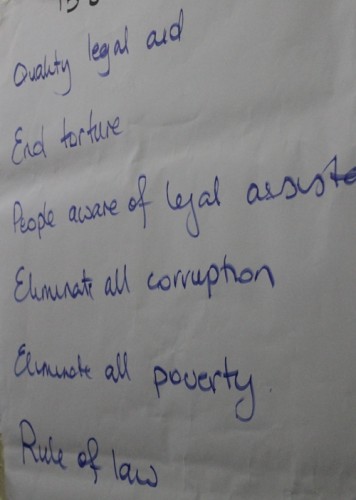 Quality legal aid
End torture
People aware of legal assiste
Eliminate all corruption
Eliminate all poverty.
Rule of law